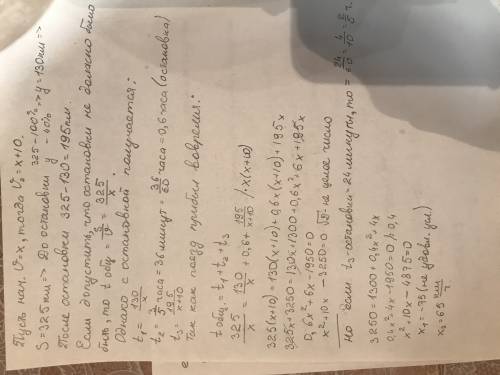 Пусть нач. V=x, тогда V₂=x+10.
S=325км => До остановки 325-100% y-40% => y=130км =>
После остановки 325-130=195км.
Если допустить, что остановки не должно было
быть, то t общ = S/V = 325/x.
Однако с остановкой получается:
t₁ = 130/x
t₂ = 3/5 часа = 36 минут = 36/60 часа = 0,6 часа (остановка)
t₃ = 195/x+10
Так как поезд прибыл вовремя:
t общ. = t₁+t₂+t₃
325/x = 130/x + 0,6 + 195/x+10 /·x(x+10)
325(x+10)=130(x+10)+0,6x(x+10)+195x
325x+3250=130x+1300+0,6x²+6x+195x
0,6x²+6x-1950=0
x²+10x-3250=0 √D - не целое число
Но если t₃-остановки=24 минуты, то = 24/60 = 4/10 = 2/5 ч.
3250=1300+0,4x²+4x
0,4x²+4x-1950=0 /:0,4
x²+10x-4875=0
x₁=-75 (не удовл. усл.)
x₂=65 км/ч
е